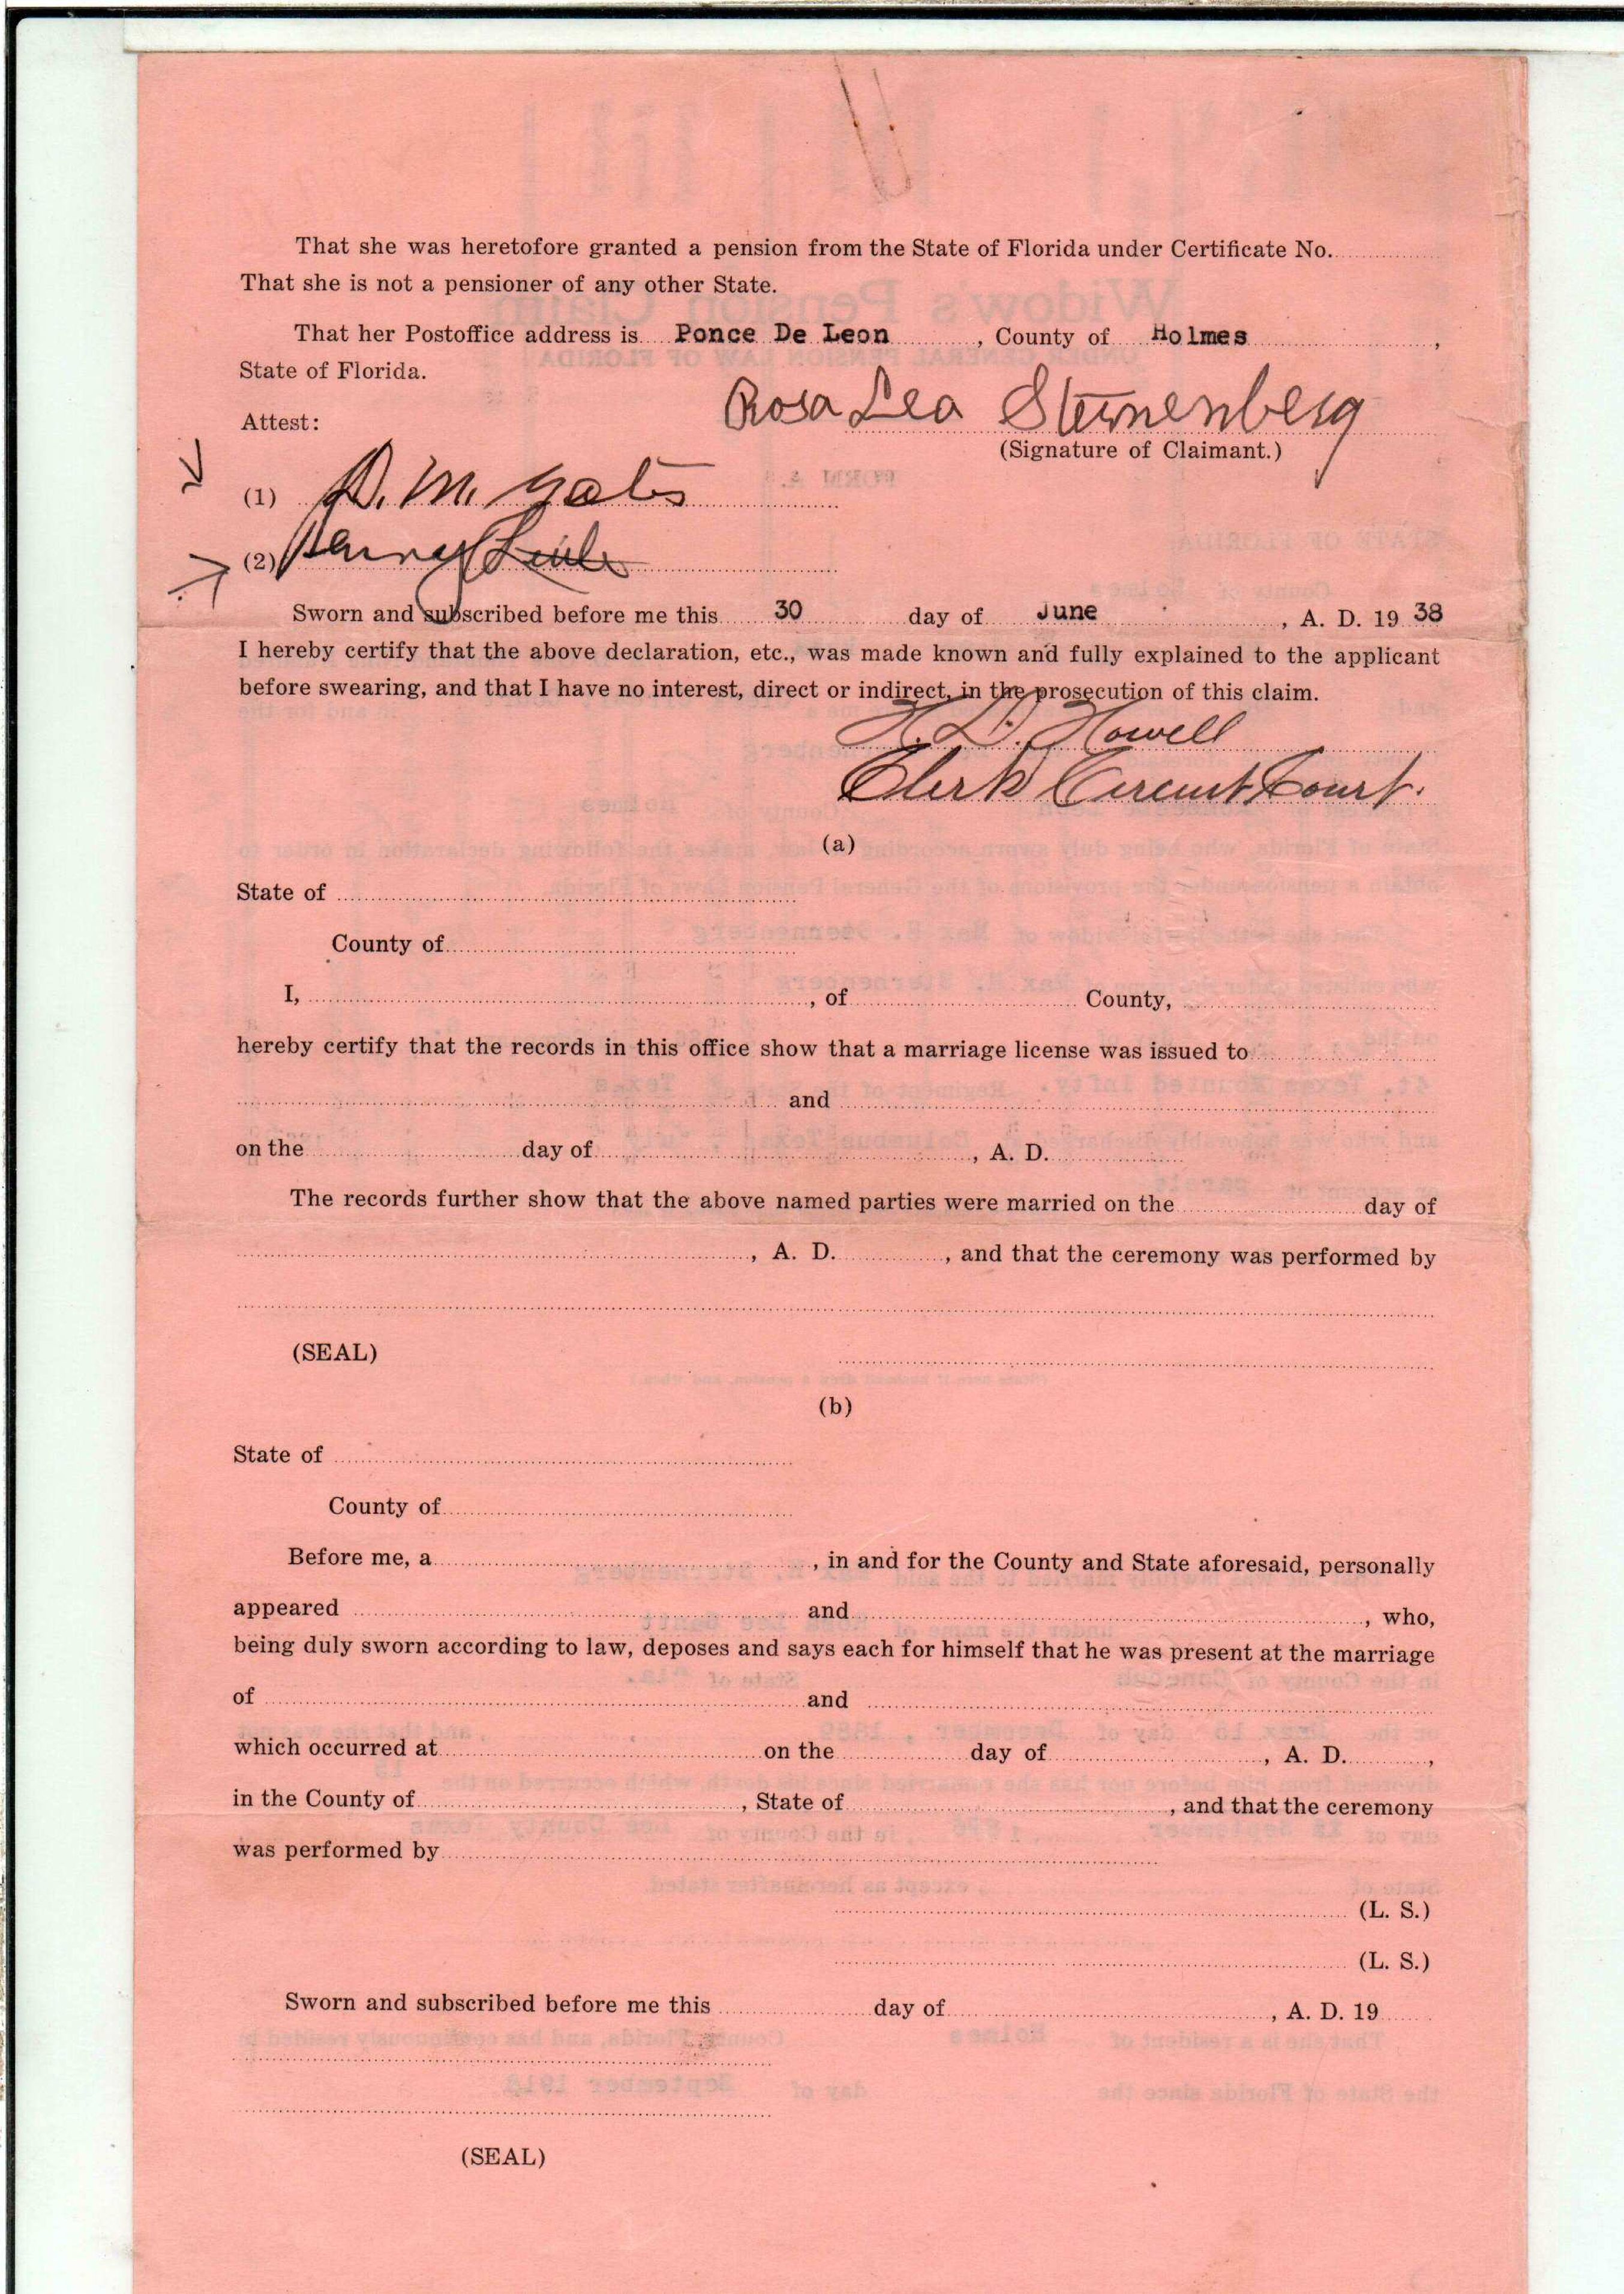 That she was heretofore granted a pension from the State of Florida under Certificate No.
That she is not a pensioner of any other State.
That her Postoffice address is Ponce De Leon, County of Holmes,
State of Florida.
Rosa Lea Sternenberg
Attest:
(Signature of Claimant.)
(1) D. M. Yates
(2) Henry
Sworn and subscribed before me this 30 day of June, A. D. 19 38
I hereby certify that the above declaration, etc., was made known and fully explained to the applicant
before swearing, and that I have no interest, direct or indirect, in the prosecution of this claim.
H. D. Howell
Clerk Circuit Court.
(a)
State of
County of
I, , of County,
hereby certify that the records in this office show that a marriage license was issued to
and
on the day of , A. D.
The records further show that the above named parties were married on the day of
, A. D. , and that the ceremony was performed by
(SEAL)
(b)
State of
County of
Before me, a , in and for the County and State aforesaid, personally
appeared and , who,
being duly sworn according to law, deposes and says each for himself that he was present at the marriage
of and
which occurred at on the day of , A. D. ,
in the County of , State of , and that the ceremony
was performed by
(L. S.)
(L. S.)
Sworn and subscribed before me this day of , A. D. 19
(SEAL)